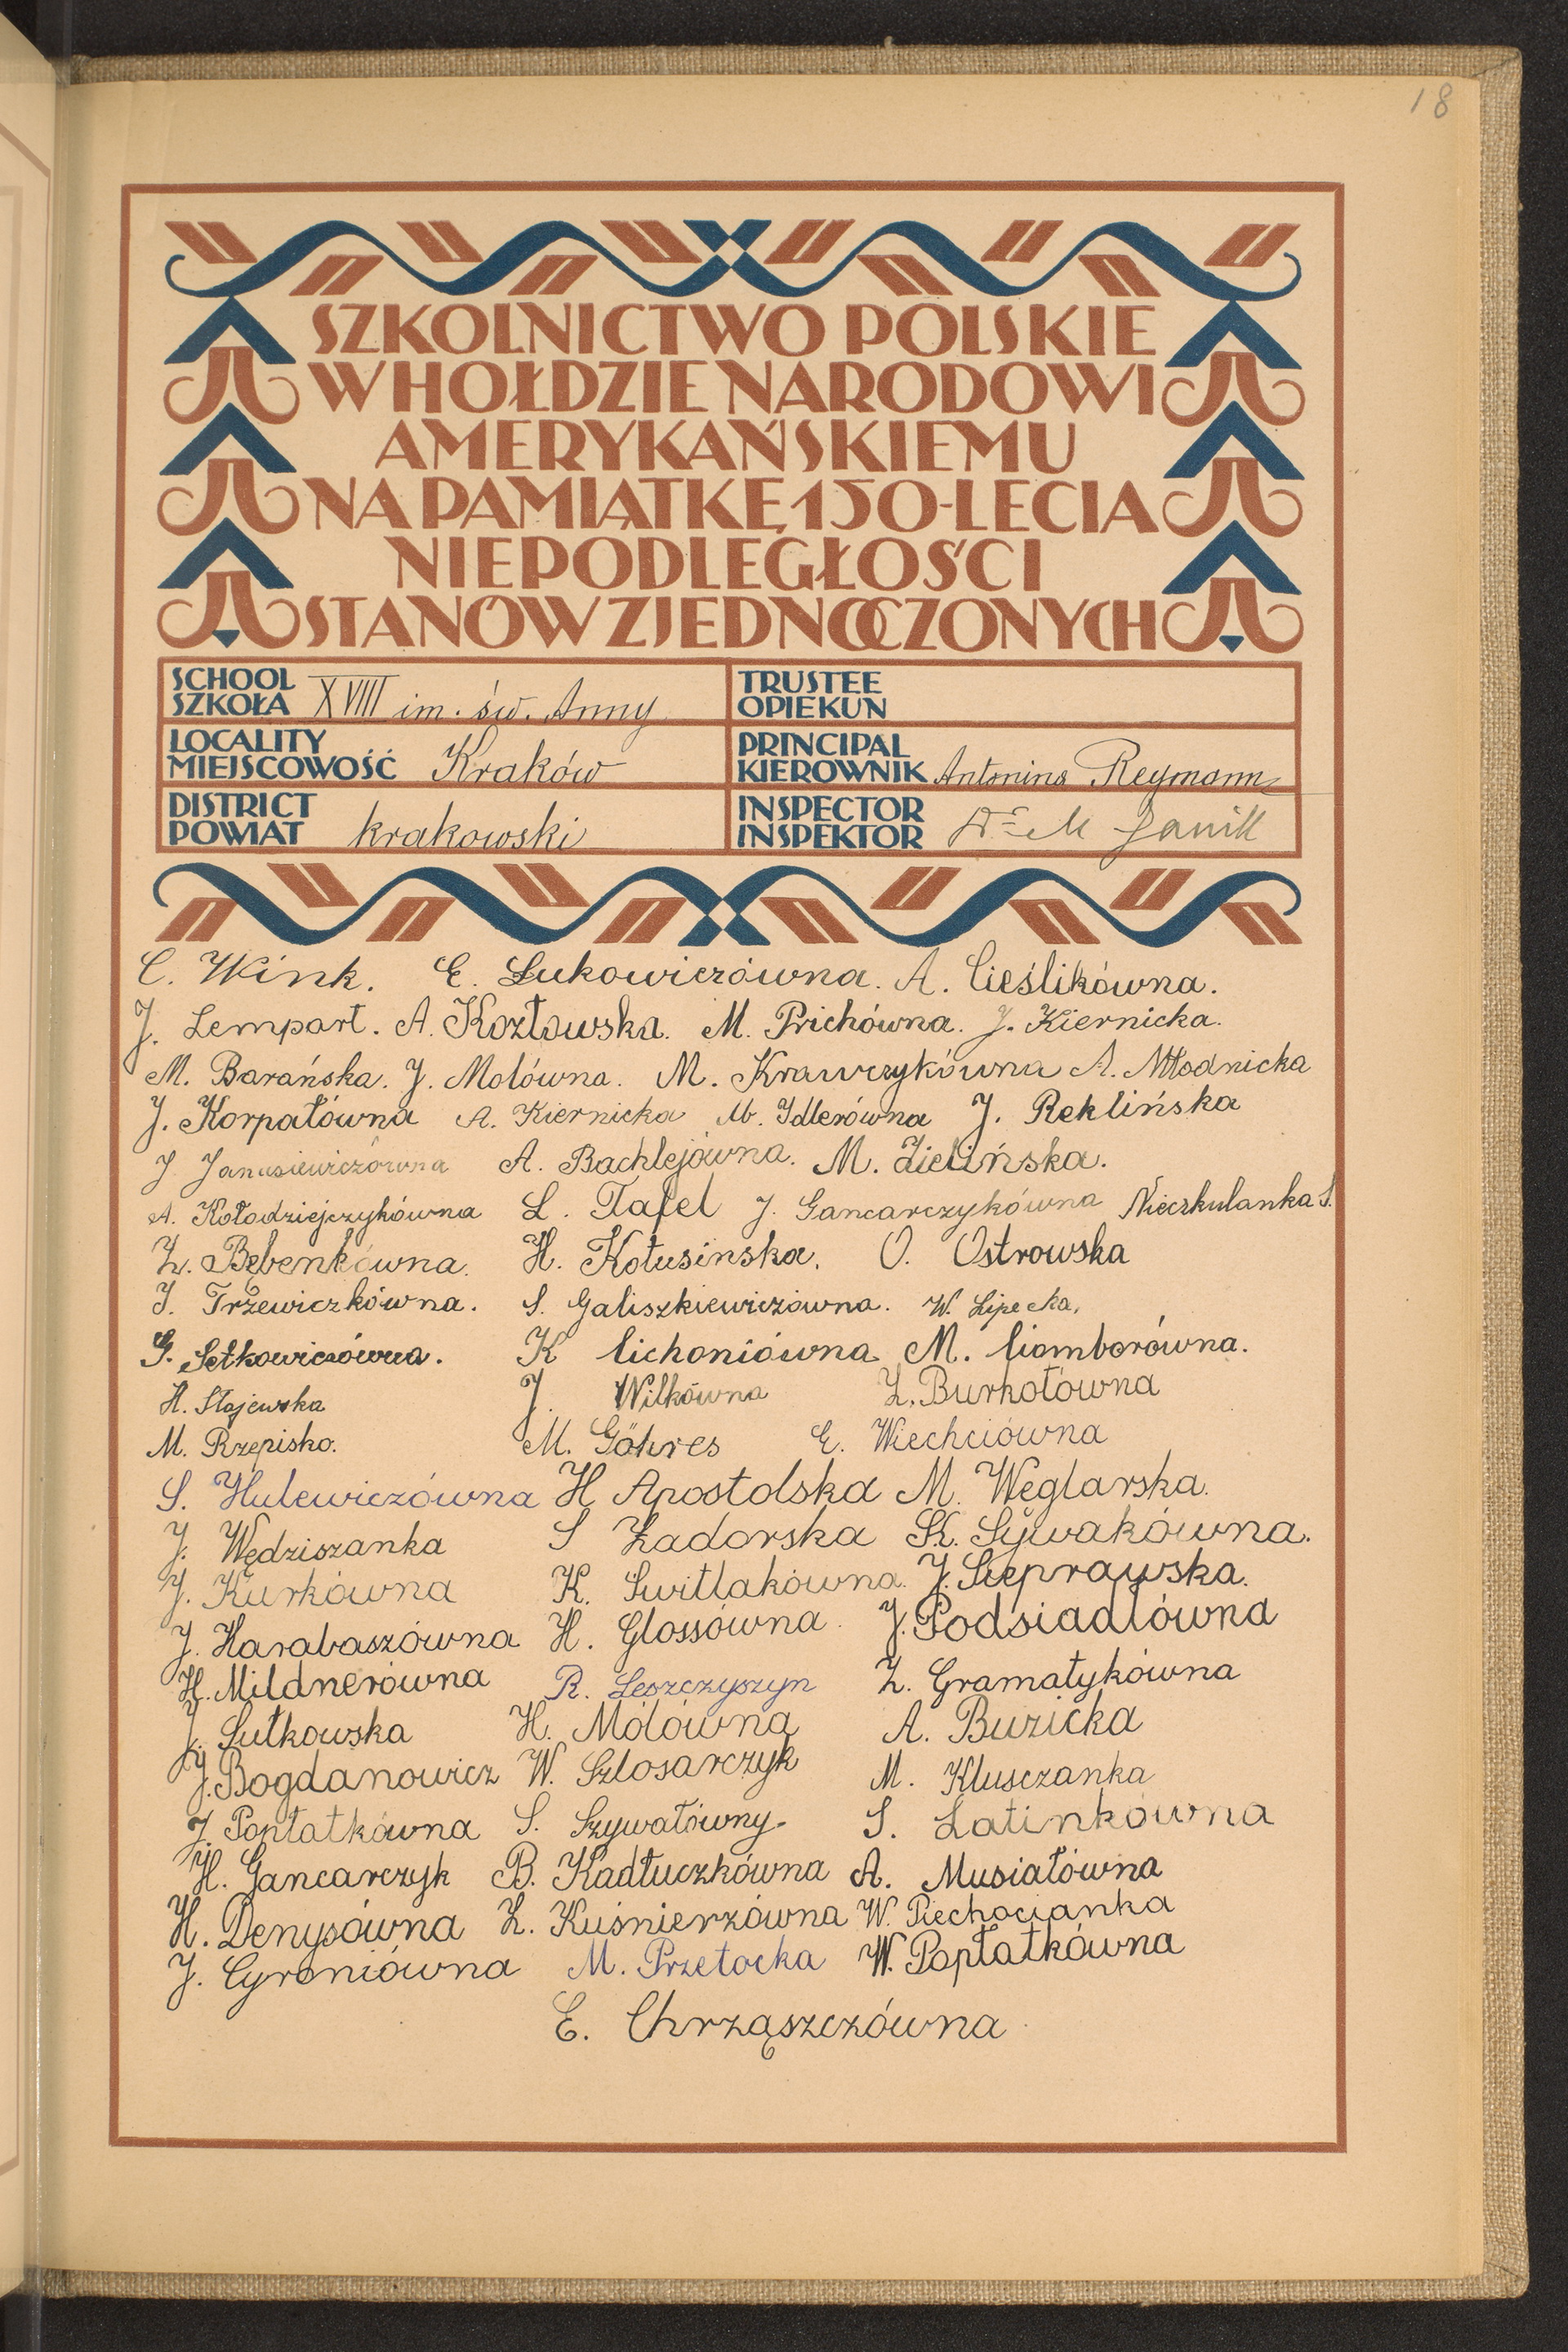 18
SZKOLNICTWO POLSKIE
W HOŁDZIE NARODOWI
AMERYKAŃSKIEMU
NA PAMIĄTKĘ 150-LECIA
NIEPODLEGŁOŚCI
STANÓW ZJEDNOCZONYCH
SCHOOL
SZKOŁA XVIII im. św. Anny
TRUSTEE
OPIEKUN
LOCALITY
MIEJSCOWOŚĆ Kraków
PRINCIPAL
KIEROWNIK Antonina Reymann
DISTRICT
POWIAT krakowski
INSPECTOR
INSPEKTOR Dr M Janik
C. Wink. E. Lukowiczówna. A. Cieślikówna.
J. Lempart. A. Kozłowska. M. Prichówna. J. Kiernicka.
M. Barańska. J. Molówna. M. Krawczykówna A. Młodnicka
J. Korpałówna A. Kiernicka M. Idlerówna J. Reklińska
J. Janusiewiczówna A. Bachlejówna. M. Zielińska.
A. Kołodziejczykówna L. Tafel J. Gancarczykówna Nieczkulanka S.
Z. Bębenkówna. H. Kołusinska. O. Ostrowska
J. Trzewiczkówna. S. Galiszkiewiczówna. W. Lipecka,
G. Setkowiczówna. K Cichoniówna M. Ciomborówna.
H. Stajewska J. Wilkówna Z. Burkotówna
M. Rzepisko. M. Göhres E. Wiechciówna
S. Hulewiczówna H Apostolska M. Węglarska.
J. Wędziszanka S Zadorska K. Sywakówna.
J. Kurkówna K. Switlakówna. J. Sieprawska.
J. Harabaszówna H. Glossówna J. Podsiadlówna
H. Mildnerówna R. Leszczyszyn Z. Gramatykówna
J. Sutkowska H. Mólówna A. Buzicka
J. Bogdanowicz W. Szlosarczyk M. Klusczanka
J. Popłatkówna S. Szywałówny. S. Latinkówna
H. Gancarczyk B. Kadłuczkówna A. Musiałówna
H. Denysówna Z. Kuśnierzówna W. Piechocianka
J. Cyroniówna M. Przetocka W. Popłatkówna
E. Chrząszczówna